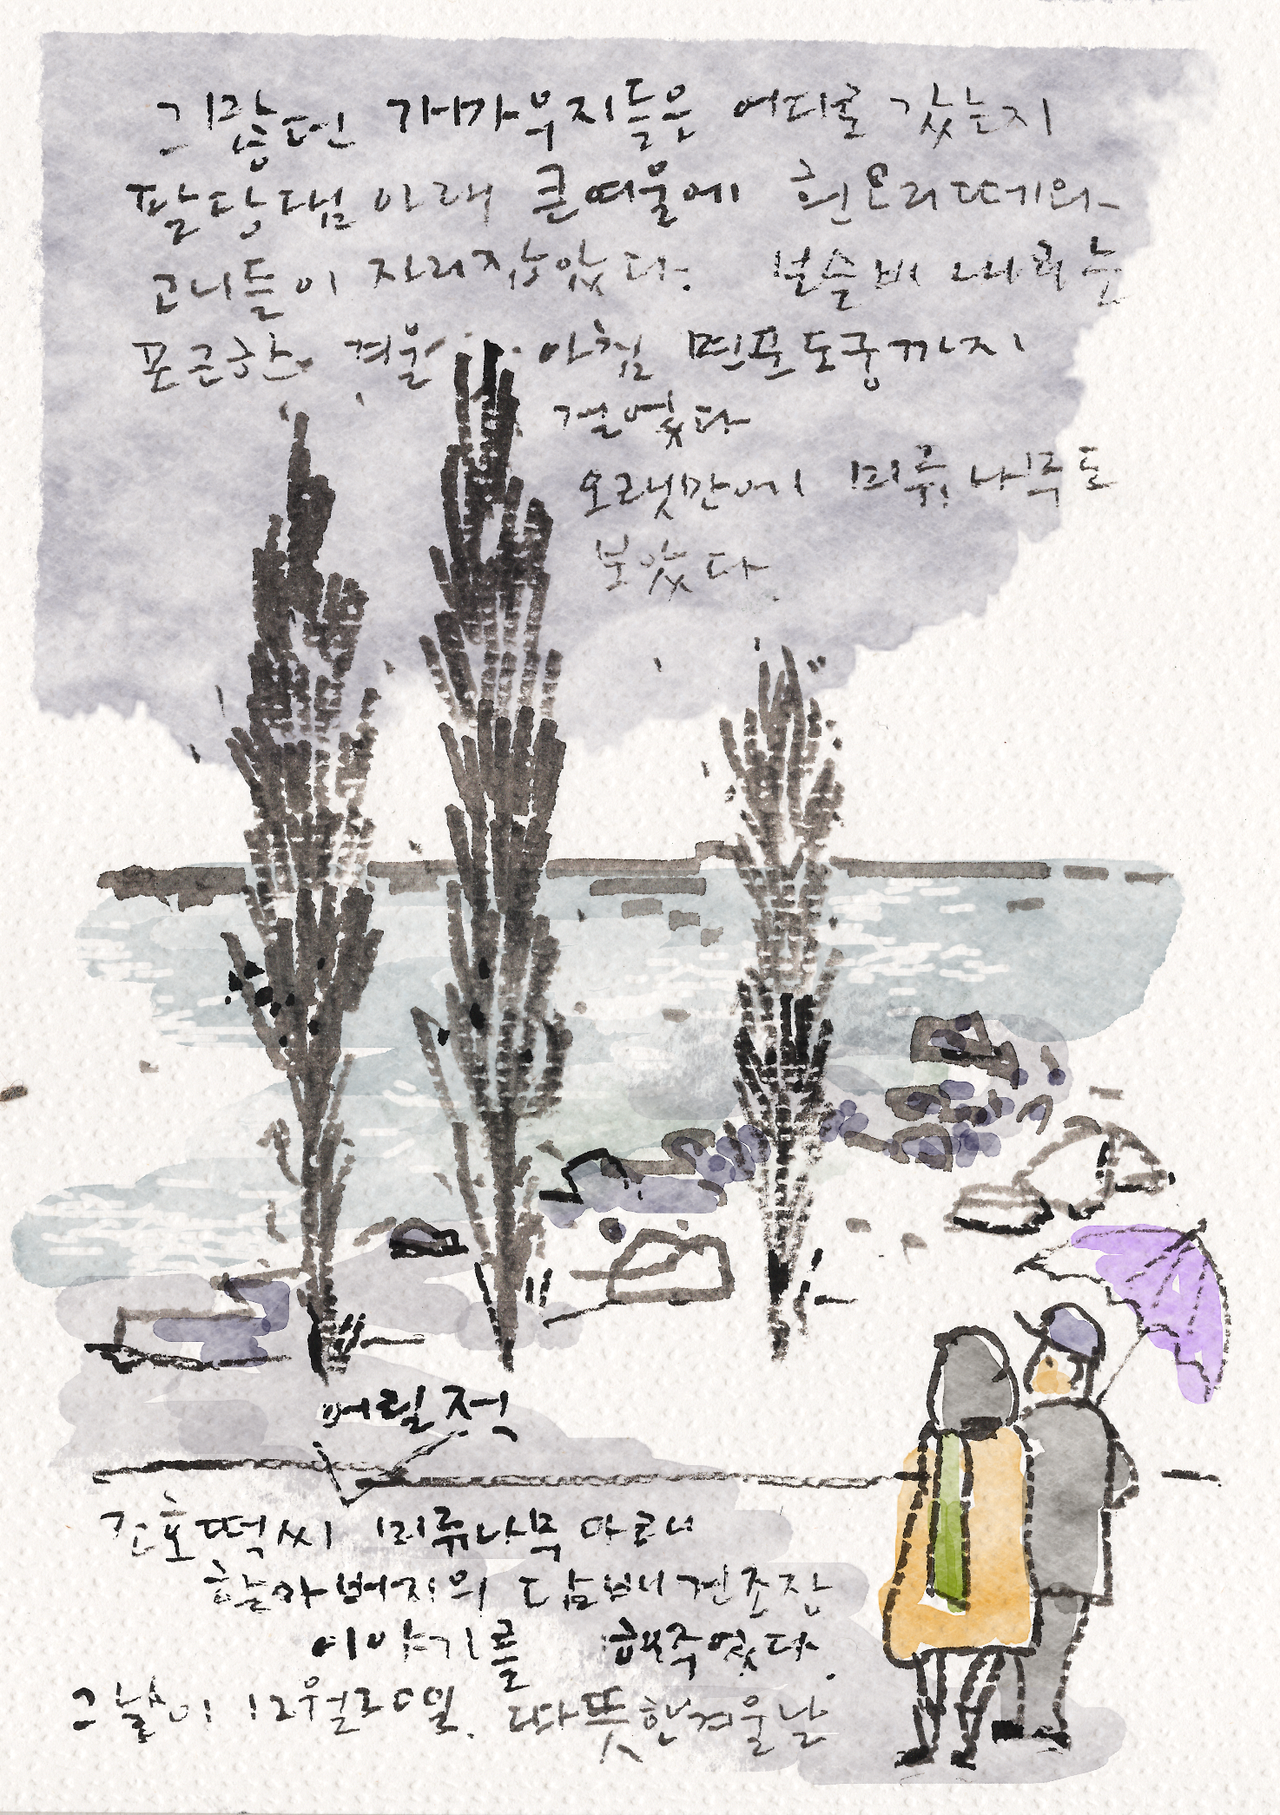 그많던 가마우지들은 어디로 갔는지
팔당댐 아래 큰여울에 흰오리떼와
고니들이 자리잡았다. 보슬비 내리는
포근한 겨울 아침
걸었다
오랫만에 미류나무도
보았다.
어릴적
미류나무
할아버지의 담배건조장
이야기를 해주었다.
그날이 12월20일. 따뜻한겨울날